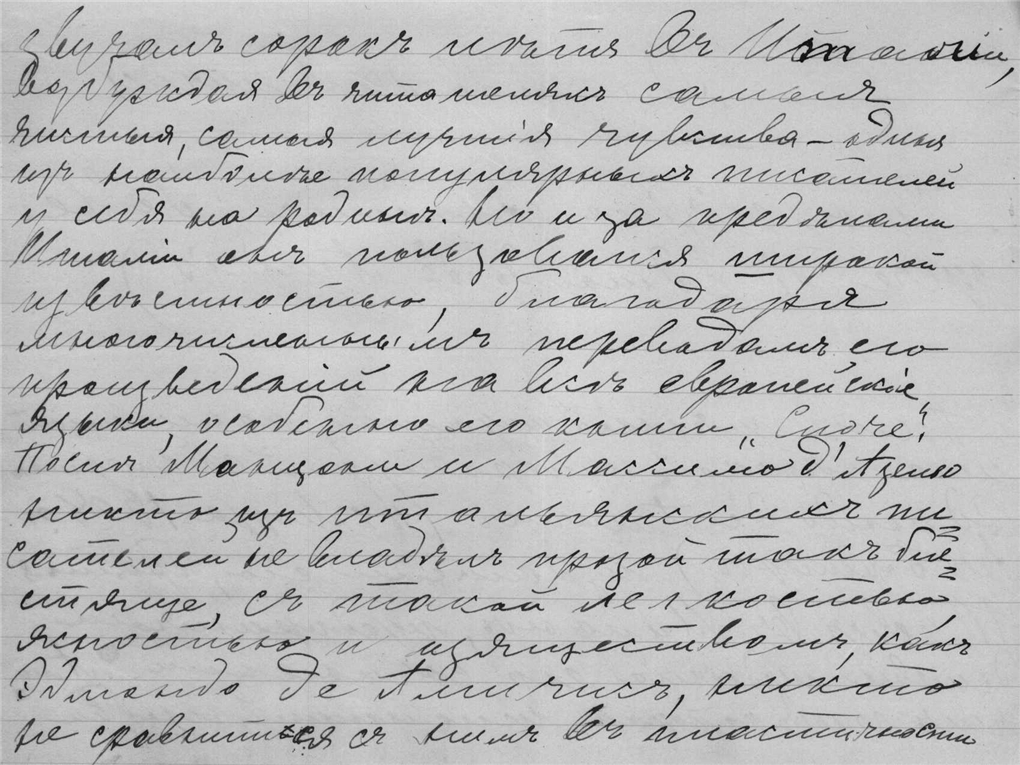 звучалъ сорокъ лѣтъ въ Италіи,
возбуждая въ читателяхъ самыя
чистыя, самыя лучшія чувства – одинъ
изъ наиболѣе популярныхъ писателей
у себя на родинѣ. Но и за предѣлами
Италіи онъ пользовался широкой
извѣстностью, благодаря
многочисленнымъ переводамъ его
произведеній на всѣ европейскіе
языки, особенно его книги „Cuore“.
Послѣ Манцони и Массимо д'Азеліо
никто изъ итальянскихъ пи=
сателей не владѣлъ прозой такъ бле=
стяще, съ такой легкостью,
ясностью и изяществомъ, какъ
Эдмондо де Амичисъ, никто
не сравнится съ нимъ въ пластичности